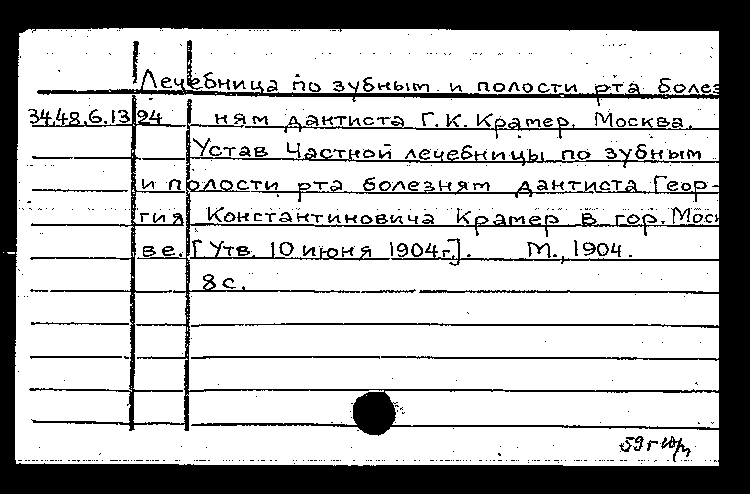 Лечебница по зубным и полости рта болез
34.48.6.13 24 ням дантиста Г.К. Крамер. Москва.
Устав Частной лечебницы по зубным
и полости рта болезням дантиста Геор-
гия Константиновича Крамер в гор. Моск
ве. [Утв. 10 июня 1904г.]. М., 1904.
8 с.